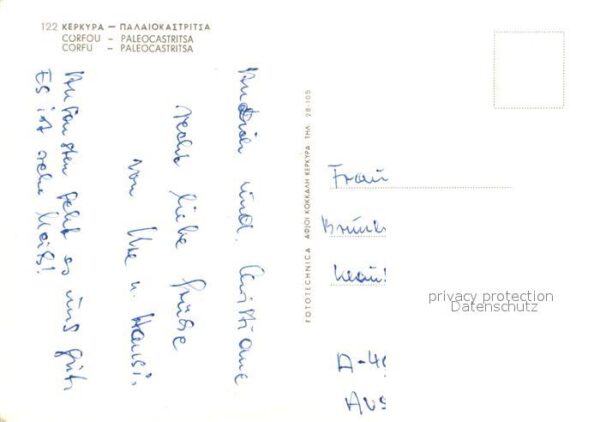 122 ΚΕΡΚΥΡΑ — ΠΑΛΑΙΟΚΑΣΤΡΙΤΣΑ
CORFOU - PALEOCASTRITSA
CORFU - PALEOCASTRITSA
und Christiane
recht liebe Grüße
von u. Hansi.
Ansonsten geht es uns gut.
Es ist sehr heiß!
FOTOTECHNICA ΑΦΙΟΙ ΚΟΚΚΑΛΗ ΚΕΡΚΥΡΑ ΤΗΛ. 28-105
Frau
privacy protection
Datenschutz
A-4